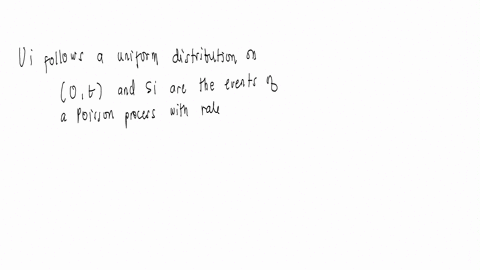 Ui follows a uniform distribution on
(0,t) and Si are the events of
a Poisson process with rate